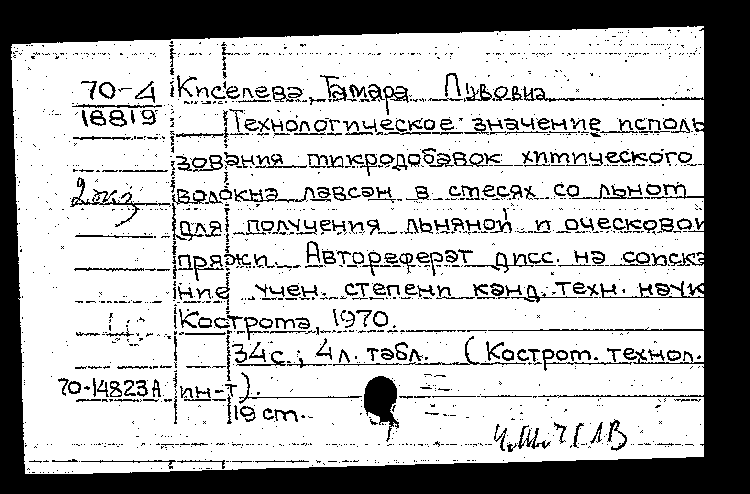 70-4 Киселева, Тамара Львовна
18819 Технологическое значение исполь
зования микродобавок химического
2 экз волокна лавсан в смесях со льном
для получения льняной и оческовой
пряжи. Автореферат дисс. на соиска
ние учен. степени канд. техн. наук
Кострома, 1970.
34с.; 4л. табл. (Костром. технол.
70-14823А ин-т).
19 см.